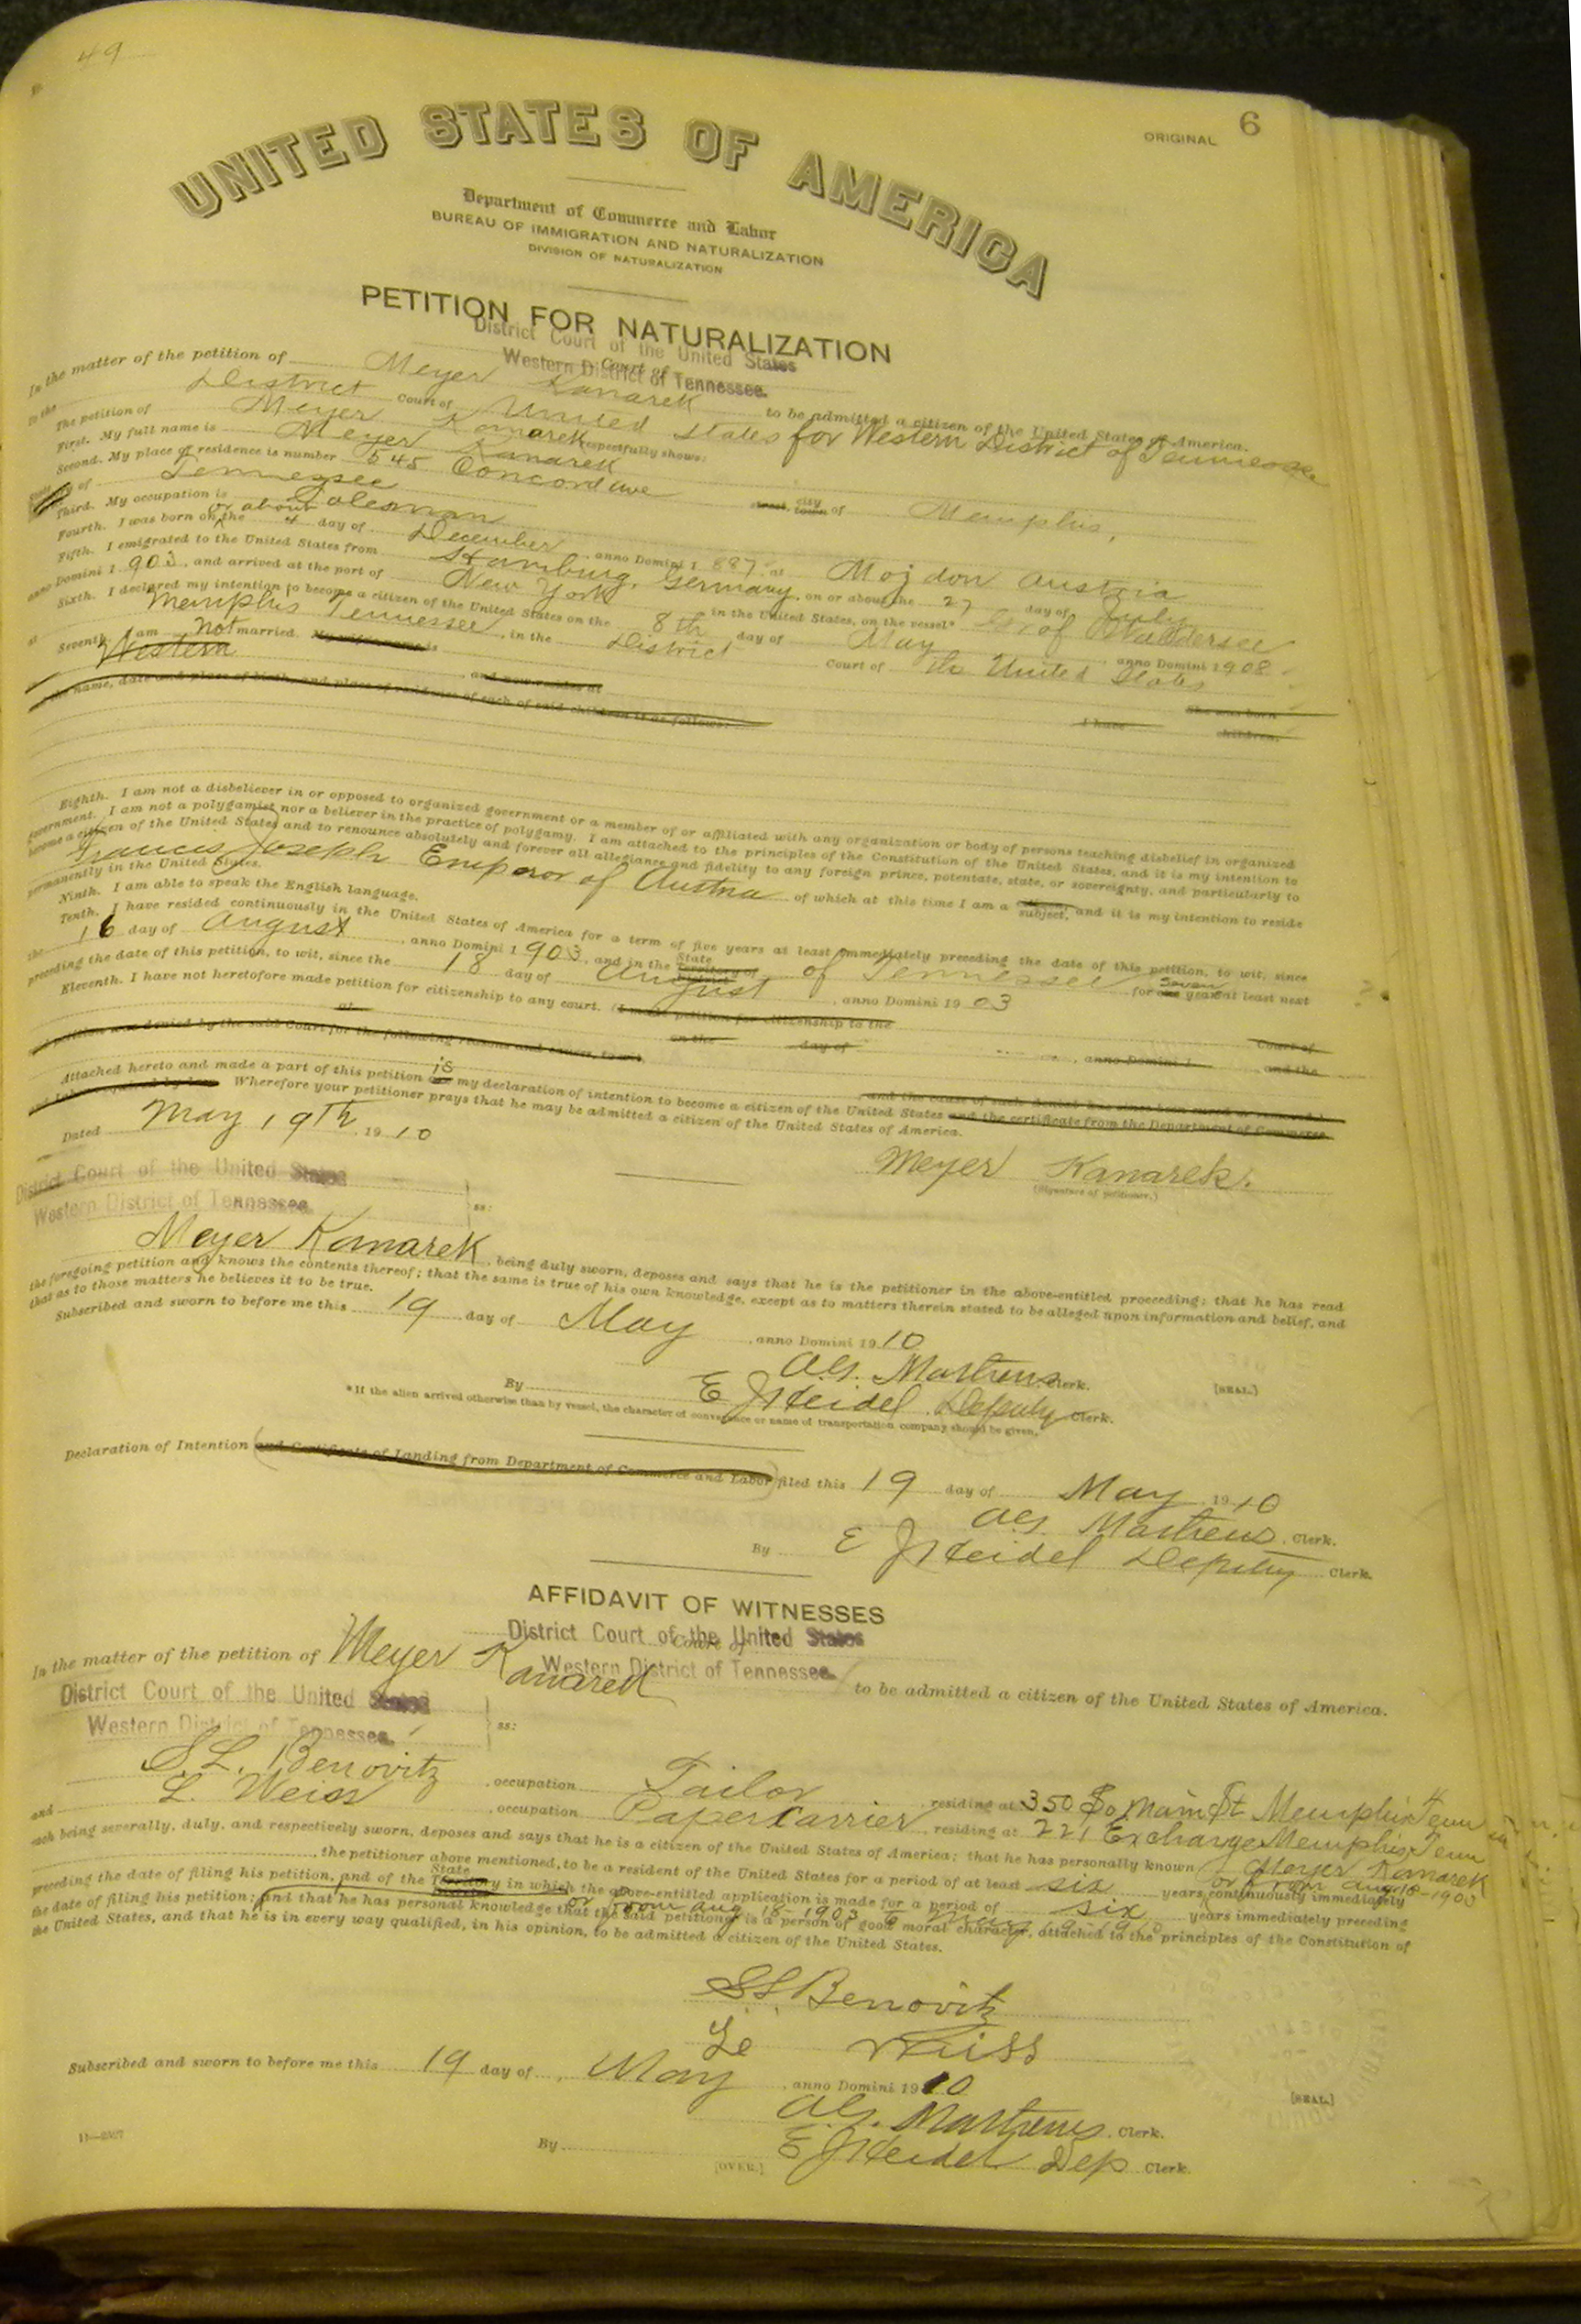 49
ORIGINAL 6
UNITED STATES OF AMERICA
Department of Commerce and Labor
BUREAU OF IMMIGRATION AND NATURALIZATION
DIVISION OF NATURALIZATION
PETITION FOR NATURALIZATION
District Court of the United States
Court of
Western District of Tennessee.
In the matter of the petition of Meyer Kanarek to be admitted a citizen of the United States of America.
To the District Court of United States for Western District of Tennessee
The petition of Meyer Kanarek respectfully shows:
First. My full name is Meyer Kanarek
Second. My place of residence is number 545 Concord ave street, city town of Memphis,
of Tennessee
Third. My occupation is Salesman
Fourth. I was born on or about the 4 day of December, anno Domini 1 887 at Mojdon Austria
Fifth. I emigrated to the United States from Hamburg, Germany, on or about the 27 day of July
anno Domini 1 903, and arrived at the port of New York in the United States, on the vessel* Graf Waldersee
Sixth. I declared my intention to become a citizen of the United States on the 8th day of May, anno Domini 1908
at Memphis Tennessee, in the District Court of the United States
Seventh. I am not married. My wife's name is
Western, and now resides at She was born
I have children,
the name, date and place of birth, and place of residence of each of said children is as follows:
Eighth. I am not a disbeliever in or opposed to organized government or a member of or affiliated with any organization or body of persons teaching disbelief in organized
government. I am not a polygamist nor a believer in the practice of polygamy. I am attached to the principles of the Constitution of the United States, and it is my intention to
become a citizen of the United States and to renounce absolutely and forever all allegiance and fidelity to any foreign prince, potentate, state, or sovereignty, and particularly to
Francis Joseph Emperor of Austria of which at this time I am a subject, and it is my intention to reside
permanently in the United States.
Ninth. I am able to speak the English language.
Tenth. I have resided continuously in the United States of America for a term of five years at least immediately preceding the date of this petition, to wit, since
the 16 day of August, anno Domini 1 903, and in the State Territory of of Tennessee for seven one year at least next
preceding the date of this petition, to wit, since the 18 day of August, anno Domini 19 03
Eleventh. I have not heretofore made petition for citizenship to any court. (I made petition for citizenship to the
Court of
at on the day of, anno Domini 1, and the
said petition was denied by the said Court for the following reasons and causes, to wit
and the cause of such denial has since been cured or removed.)
Attached hereto and made a part of this petition is are my declaration of intention to become a citizen of the United States and the certificate from the Department of Commerce
and Labor required by law. Wherefore your petitioner prays that he may be admitted a citizen of the United States of America.
Dated May 19th, 19 10
Meyer Kanarek.
(Signature of petitioner.)
District Court of the United States
Western District of Tennessee.
ss:
Meyer Kanarek, being duly sworn, deposes and says that he is the petitioner in the above-entitled proceeding; that he has read
the foregoing petition and knows the contents thereof; that the same is true of his own knowledge, except as to matters therein stated to be alleged upon information and belief, and
that as to those matters he believes it to be true.
Subscribed and sworn to before me this 19 day of May, anno Domini 19 10
Clerk.
[SEAL.]
By E J Heidel Deputy Clerk.
*If the alien arrived otherwise than by vessel, the character of conveyance or name of transportation company should be given.
Declaration of Intention (and Certificate of Landing from Department of Commerce and Labor) filed this 19 day of May, 19 10
Clerk.
By E J Heidel Deputy Clerk.
AFFIDAVIT OF WITNESSES
District Court of the United States
Court of
Western District of Tennessee.
In the matter of the petition of Meyer Kanarek to be admitted a citizen of the United States of America.
District Court of the United States
Western District of Tennessee.
ss:
S. L. Benovitz, occupation Tailor, residing at 350 So Main St Memphis Tenn
and L. Weiss, occupation Paper Carrier, residing at 221 Exchange Memphis Tenn
each being severally, duly, and respectively sworn, deposes and says that he is a citizen of the United States of America; that he has personally known Meyer Kanarek
, the petitioner above mentioned, to be a resident of the United States for a period of at least six years continuously immediately
or from Aug 18-1903
preceding the date of filing his petition, and of the State Territory in which the above-entitled application is made for a period of six years immediately preceding
or from Aug 18-1903 to May 19-1910
the date of filing his petition; and that he has personal knowledge that the said petitioner is a person of good moral character, attached to the principles of the Constitution of
the United States, and that he is in every way qualified, in his opinion, to be admitted a citizen of the United States.
S L Benovitz
Le Weiss
Subscribed and sworn to before me this 19 day of May, anno Domini 19 10
Clerk.
[SEAL.]
By E J Heidel Dep Clerk.
[OVER.]